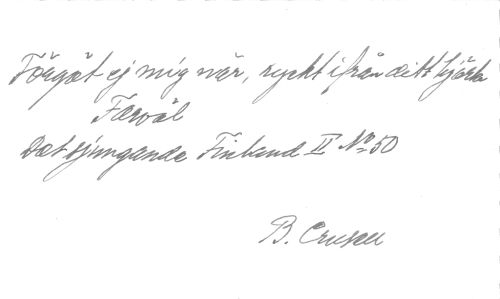 Förgät ej mig när, ryckt ifrån ditt hjärta
Farväl
Det sjungande Finland II No 50
B. Crusell